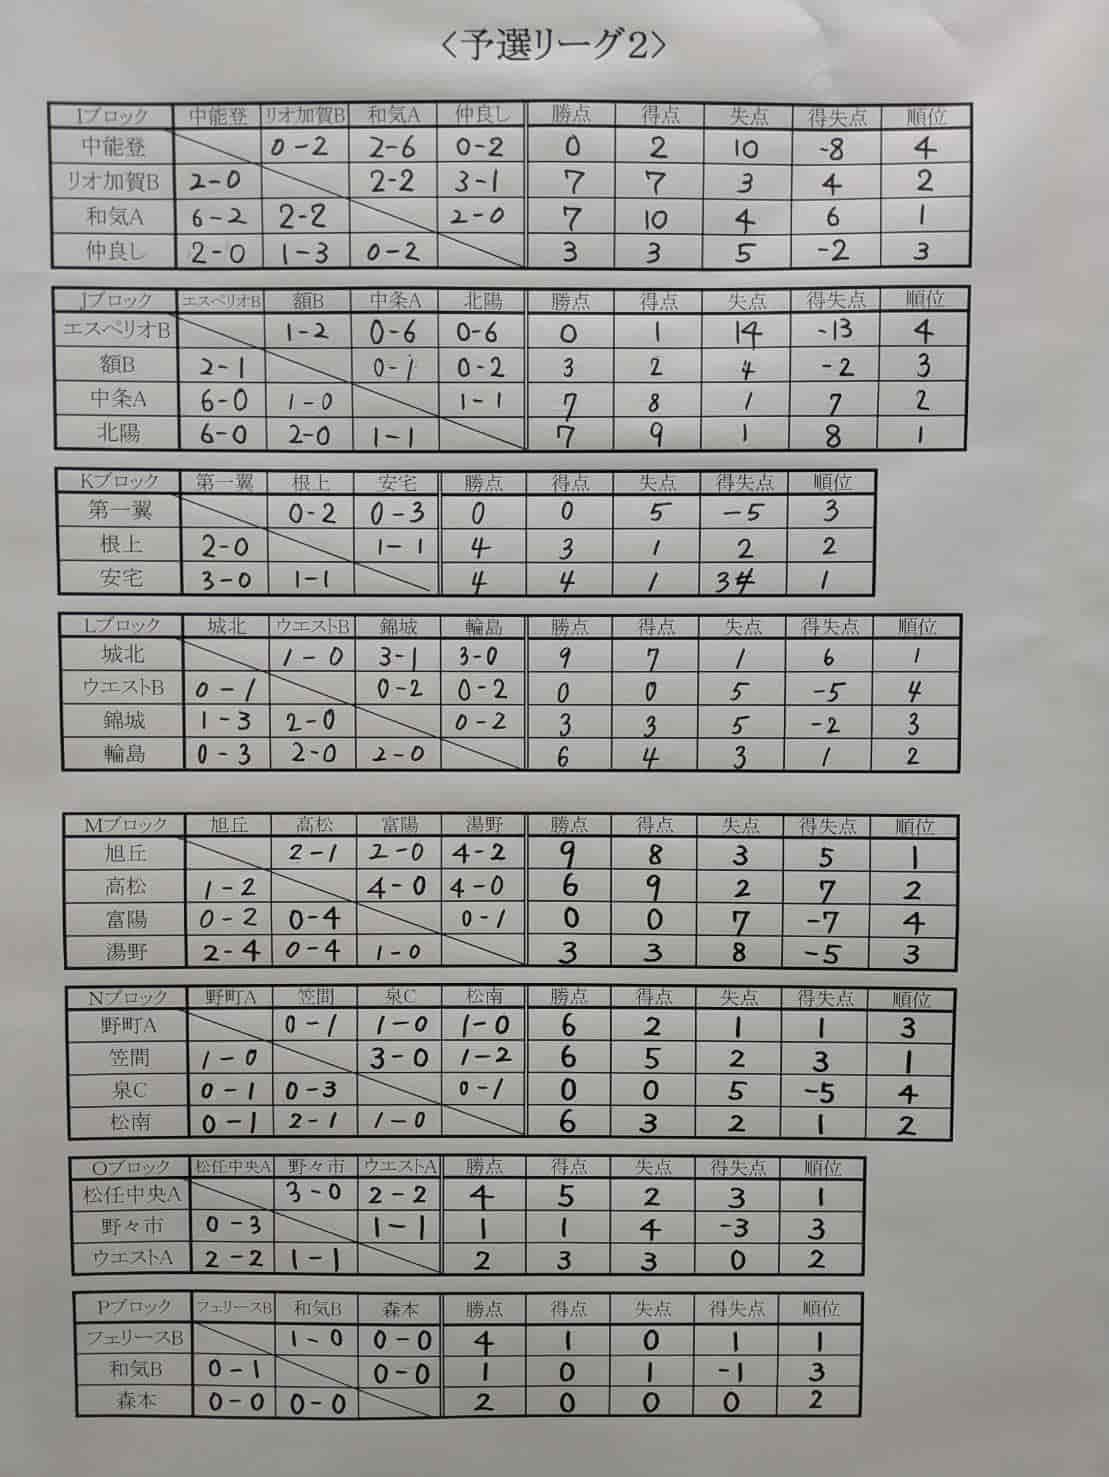 <予選リーグ2>
Iブロック 中能登 リオ加賀B 和気A 仲良し 勝点 得点 失点 得失点 順位
中能登 0-2 2-6 0-2 0 2 10 -8 4
リオ加賀B 2-0 2-2 3-1 7 7 3 4 2
和気A 6-2 2-2 2-0 7 10 4 6 1
仲良し 2-0 1-3 0-2 3 3 5 -2 3
Jブロック エスペリオB 額B 中条A 北陽 勝点 得点 失点 得失点 順位
エスペリオB 1-2 0-6 0-6 0 1 14 -13 4
額B 2-1 0-1 0-2 3 2 4 -2 3
中条A 6-0 1-0 1-1 7 8 1 7 2
北陽 6-0 2-0 1-1 7 9 1 8 1
Kブロック 第一翼 根上 安宅 勝点 得点 失点 得失点 順位
第一翼 0-2 0-3 0 0 5 -5 3
根上 2-0 1-1 4 3 1 2 2
安宅 3-0 1-1 4 4 1 3 1
Lブロック 城北 ウエストB 錦城 輪島 勝点 得点 失点 得失点 順位
城北 1-0 3-1 3-0 9 7 1 6 1
ウエストB 0-1 0-2 0-2 0 0 5 -5 4
錦城 1-3 2-0 0-2 3 3 5 -2 3
輪島 0-3 2-0 2-0 6 4 3 1 2
Mブロック 旭丘 高松 富陽 湯野 勝点 得点 失点 得失点 順位
旭丘 2-1 2-0 4-2 9 8 3 5 1
高松 1-2 4-0 4-0 6 9 2 7 2
富陽 0-2 0-4 0-1 0 0 7 -7 4
湯野 2-4 0-4 1-0 3 3 8 -5 3
Nブロック 野町A 笠間 泉C 松南 勝点 得点 失点 得失点 順位
野町A 0-1 1-0 1-0 6 2 1 1 3
笠間 1-0 3-0 1-2 6 5 2 3 1
泉C 0-1 0-3 0-1 0 0 5 -5 4
松南 0-1 2-1 1-0 6 3 2 1 2
Oブロック 松任中央A 野々市 ウエストA 勝点 得点 失点 得失点 順位
松任中央A 3-0 2-2 4 5 2 3 1
野々市 0-3 1-1 1 1 4 -3 3
ウエストA 2-2 1-1 2 3 3 0 2
Pブロック フェリースB 和気B 森本 勝点 得点 失点 得失点 順位
フェリースB 1-0 0-0 4 1 0 1 1
和気B 0-1 0-0 1 0 1 -1 3
森本 0-0 0-0 2 0 0 0 2